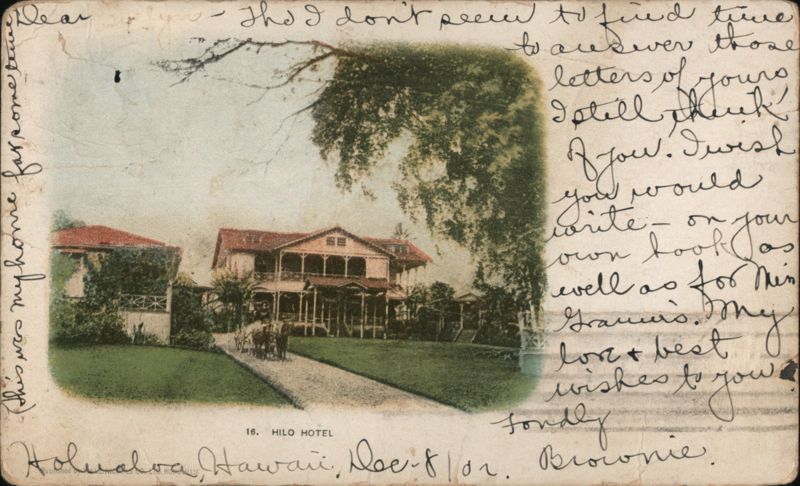 Dear Evelyn - Tho I don't seem to find time
to answer those
letters of yours
I still think
of you. I wish
you would
write - on your
own hook as
well as for Min
My
love & best
wishes to you
Fondly
Brownie.
Holualoa, Hawaii, Dec - 8/02.
(This was my home for some time
16. HILO HOTEL